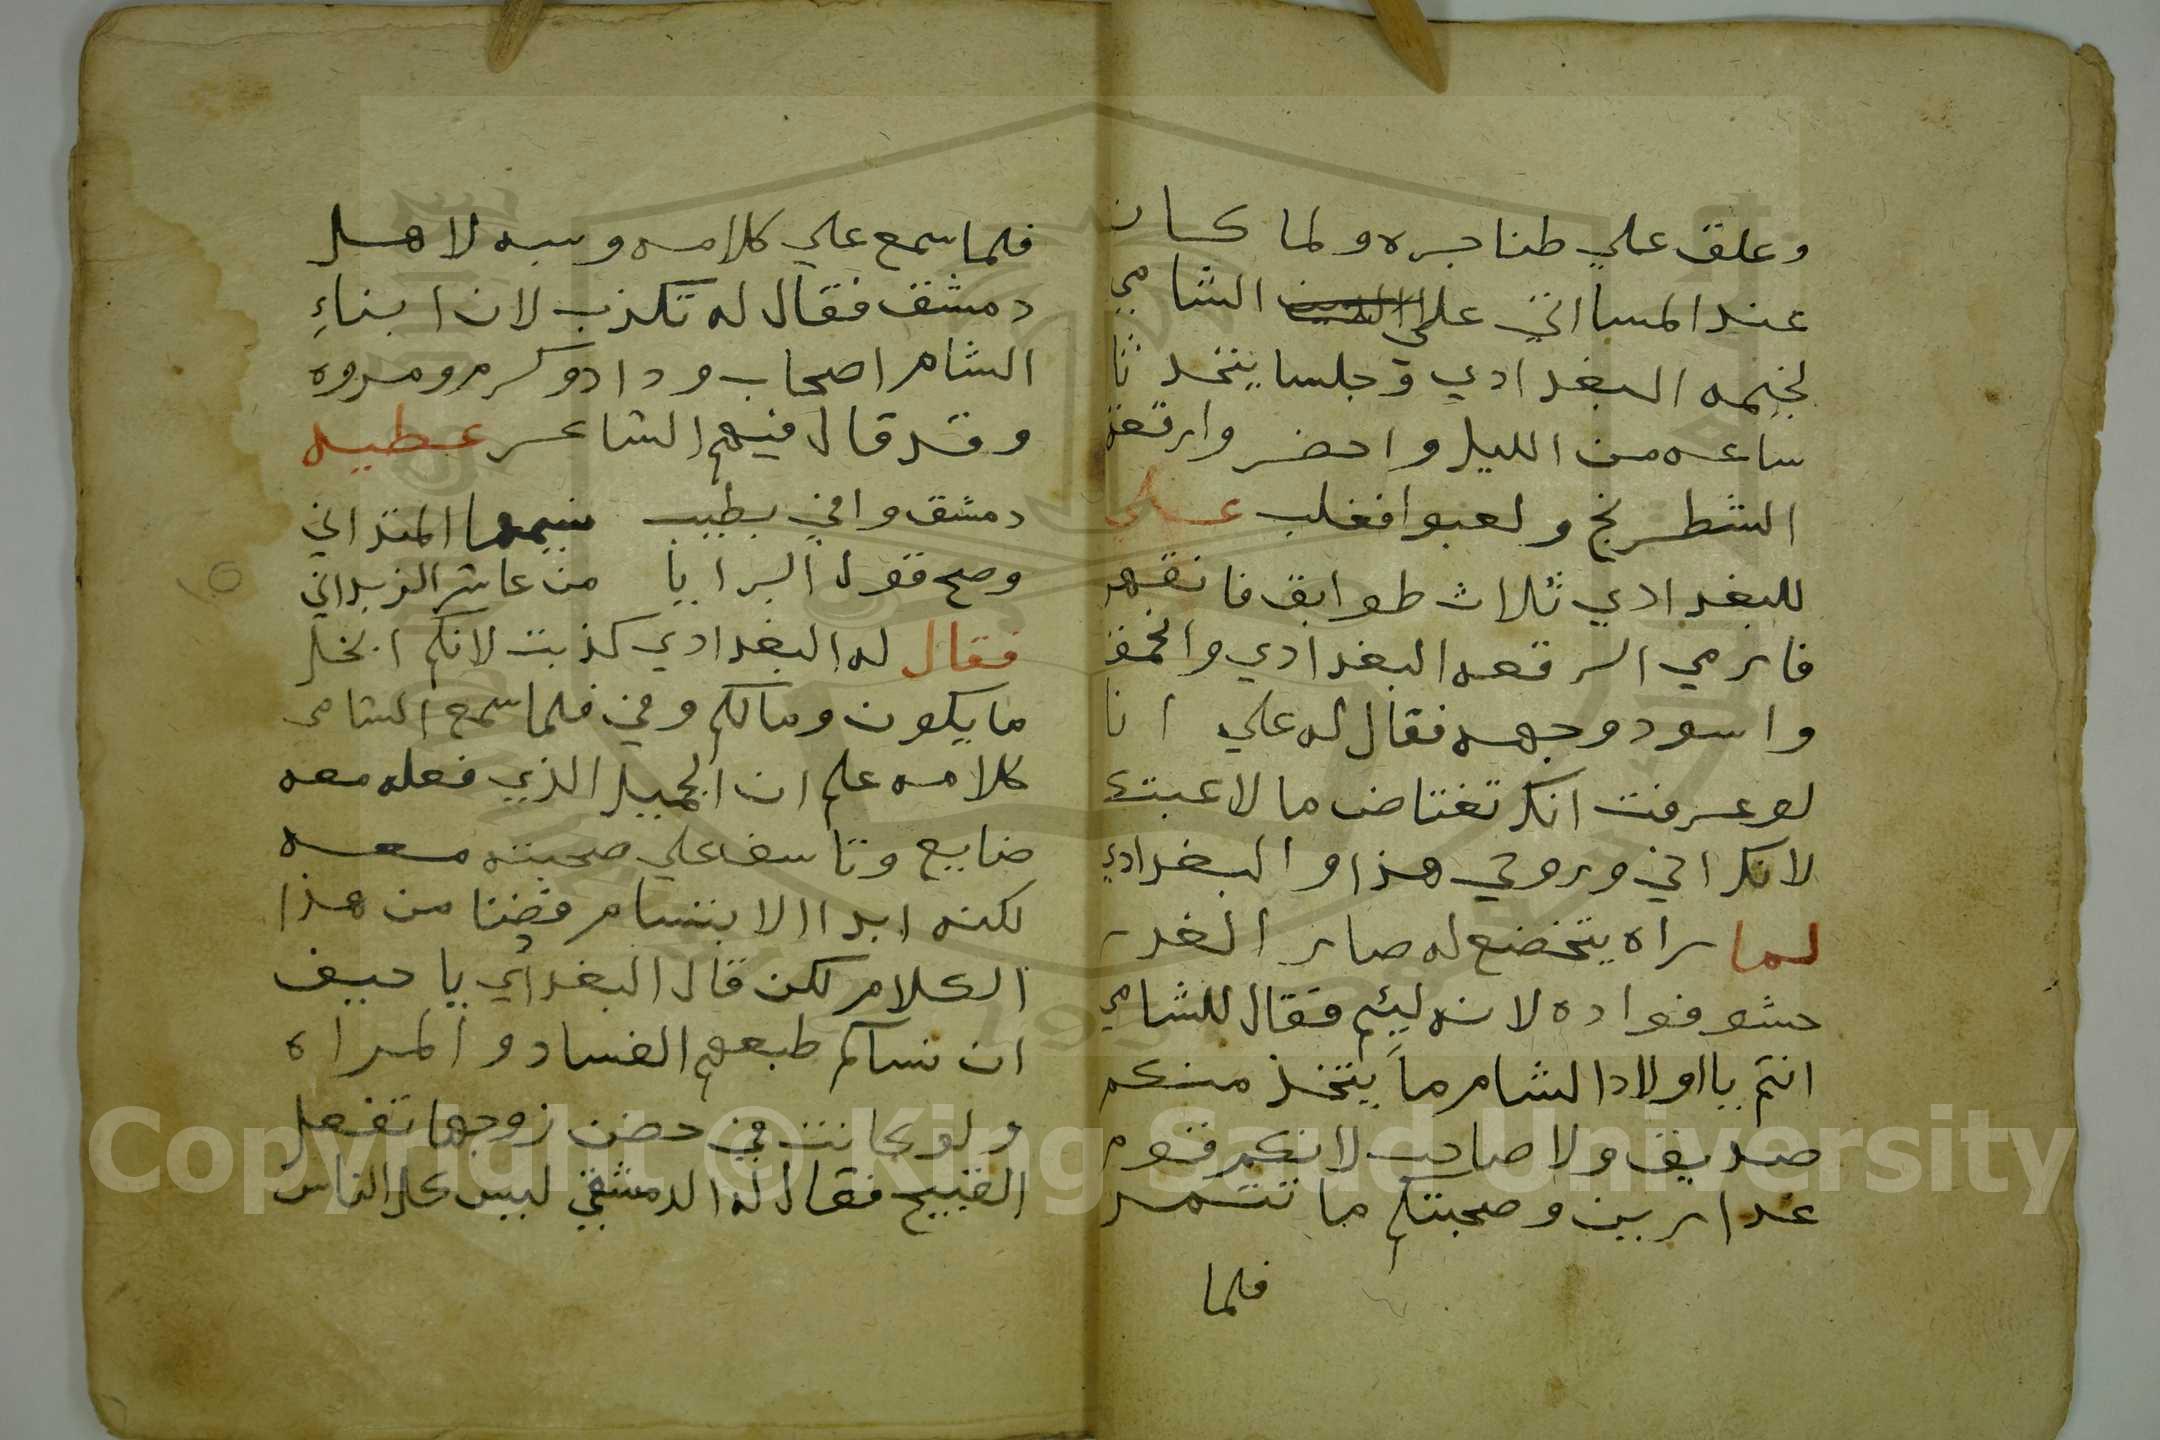 وعلق علي طناجره ولما كان
عند المسا اتي علي الشامي
لخيمه البغدادي وجلسا يتحد ثا
ساعه من الليل واحضر وارقعة
الشطرنج ولعبوا فغلب علي
للبغدادي ثلاث طوابق فانقهر
فارمي الرقعه البغدادي وانحمق
واسود وجهه فقال له علي انا
لو عرفت انك تغتاض ما لاعبتك
لانك اخي وروحي هذا والبغدادي
لما راه يتخضع له صار الغدر
حشو فواده لانه ليئم فقال للشامي
انتم يا اولاد الشام ما يتخذ منكم
صديق ولا صاحب لانكم قوم
غدارين وصحبتكم ما تثمر
فلما
فلما سمع علي كلامه وسبه لاهل
دمشق فقال له تكذب لان ابناء
الشام اصحاب وداد وكرم ومروه
وقد قال فيهم الشاعر عطيه
دمشق وافي بطيب نسيمها المتداني
وصح قول البرايا من عاشر الزبداني
فقال له البغدادي كذبت لانكم ابخل
ما يكون ومالكم وفي فلما سمع الشامي
كلامه علم ان الجميل الذي فعله معه
ضايع وتاسف علي صحبته معه
لكنه ابدا الابتسام من هذا
الكلام لكن قال البغدادي يا حيف
ان نساكم طبعهم الفساد والمراه
ولو كانت في حضن زوجها تفعل
القبيح فقال له الدمشقي ليس كل الناس
Copyright © King Saud University